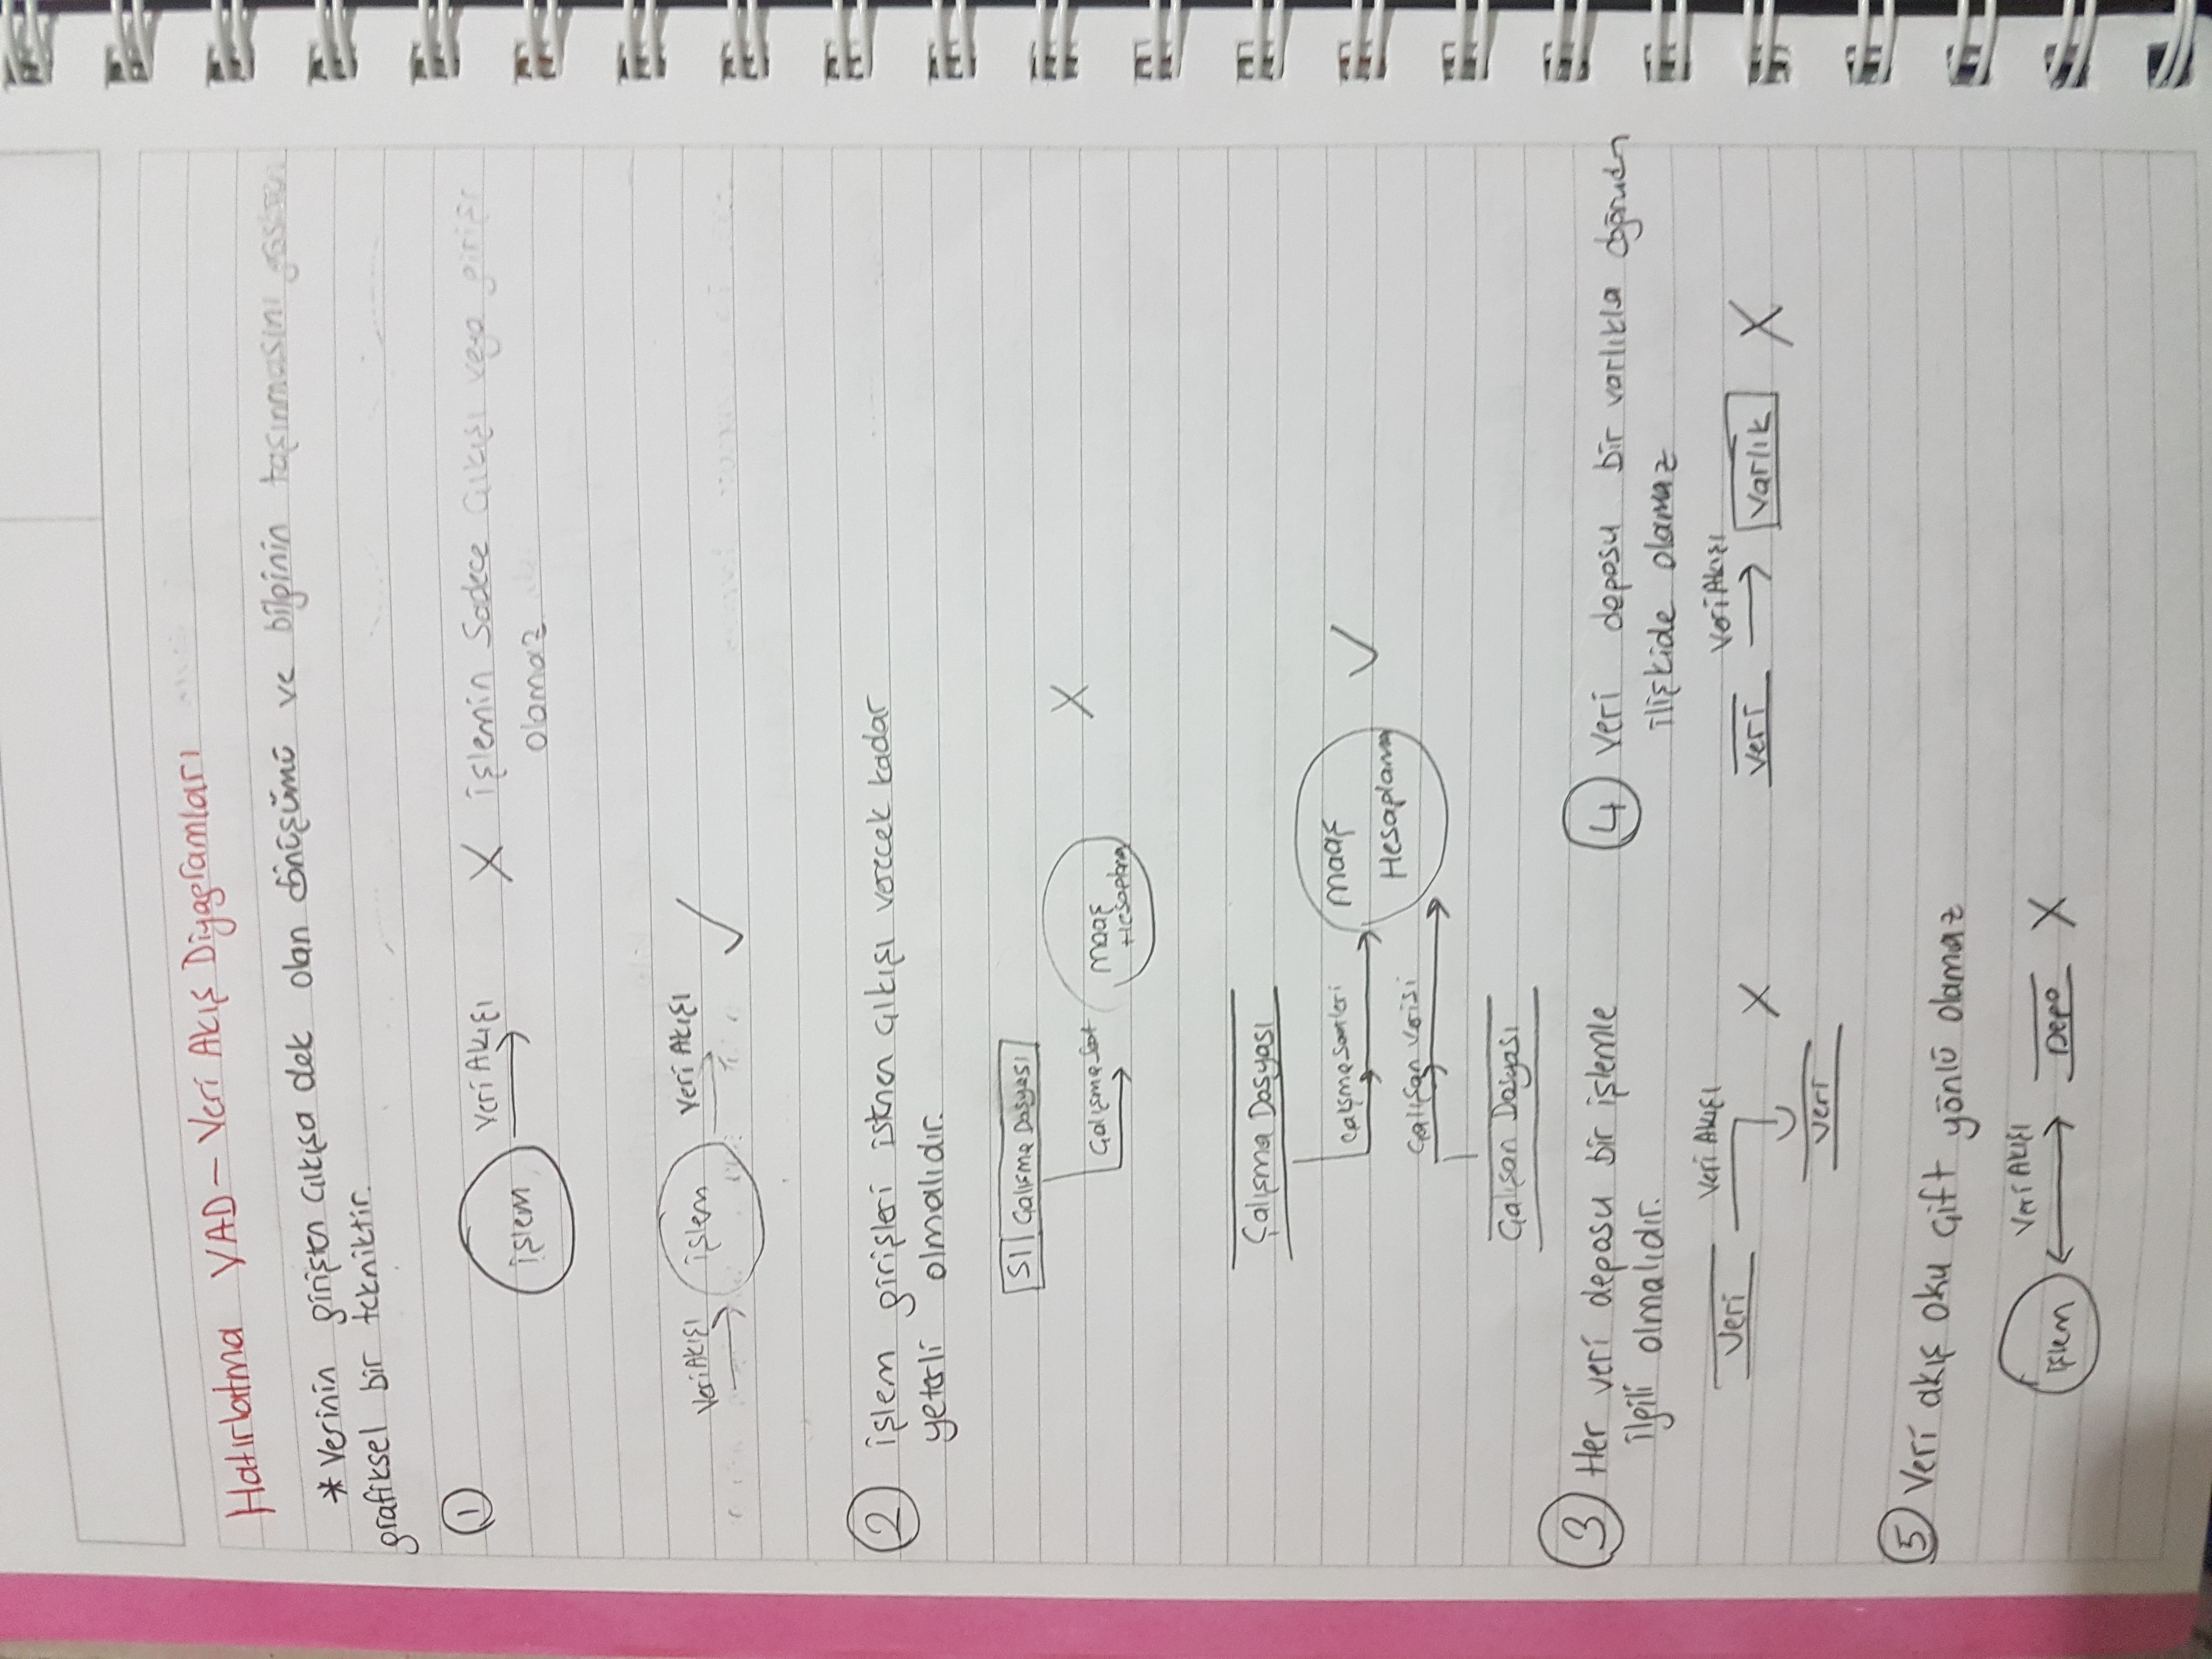 Hatırlatma VAD - Veri Akış Diyagramları
* Verinin girişten çıkışa dek olan dönüşümü ve bilginin taşınmasını gösteren
grafiksel bir tekniktir.
1
işlem
Veri Akışı
X işlemin Sadece Çıkışı veya girişi
olamaz
Veri Akışı
işlem
Veri Akışı
✓
2 işlem girişleri istenen çıkışı verecek kadar
yeterli olmalıdır.
S1 Çalışma Dosyası
Çalışma Saat
maaş
Hesaplama
X
Çalışma Dosyası
Çalışma Saatleri
maaş
Hesaplama
✓
Çalışan verisi
Çalışan Dosyası
3 Her veri deposu bir işlemle
ilgili olmalıdır.
Veri
Veri Akışı
X
Veri
4 Veri deposu bir varlıkla doğrudan
ilişkide olamaz
Veri
Veri Akışı
Varlık
X
5 Veri akış oku çift yönlü olamaz
işlem
Veri Akışı
Depo
X